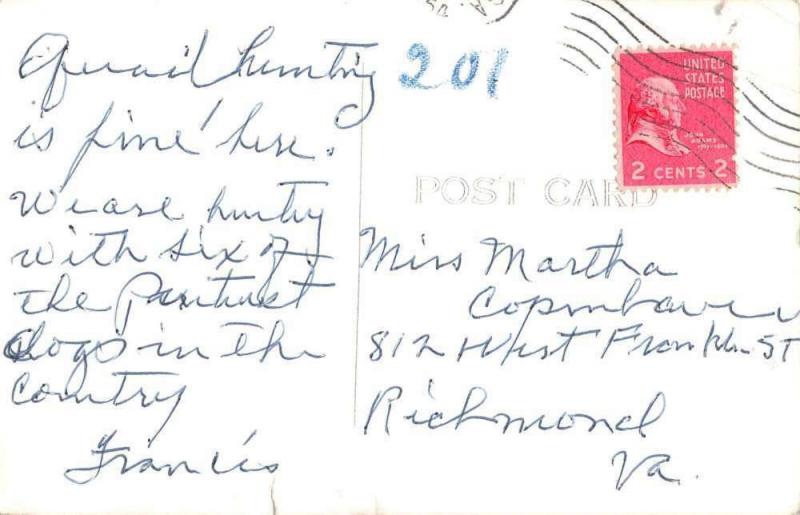 Quail hunting
is fine here.
We are hunting
with six of
the
dogs in the
country
Francis
201
POST CARD
UNITED
STATES
POSTAGE
JOHN
ADAMS
2 CENTS 2
Miss Martha
812 West Franklin ST
Richmond
Va.